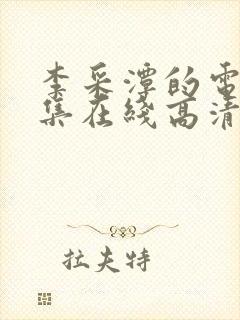 李采潭的電
集在綫高清
拉夫特